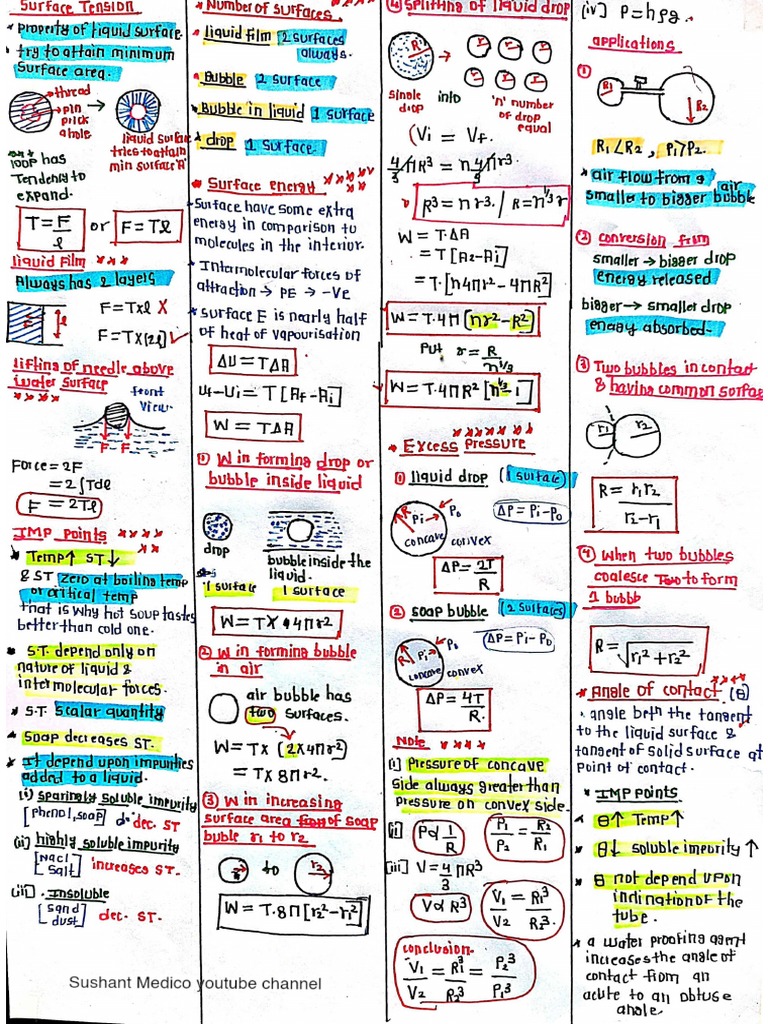 Surface Tension
* property of liquid surface.
* try to attain minimum
surface area.
thread
pin
prick
ahole
liquid surface
tries to attain
min surface 'A'
100p has
Tendenly to
expand.
T = F/l or F = Tl
liquid Film ***
Always has 2 layers
F = T×l X
F = T×(2l) ✓
l
F
lifting of needle above
water surface
****
front
View.
F F
Force = 2F
= 2∫Tdl
F = 2Tl
IMP points ****
* Temp↑ ST↓
& ST zero at boiling temp
or critical temp
that is why hot soup tastes
better than cold one.
* S.T. depend only on
nature of liquid &
intermolecular forces.
* S.T. scalar quantity
* Soap decreases ST.
* It depend upon impurities
added to a liquid.
(i) sparingly soluble impurity
[phenol, soap] dec. ST
(ii) highly soluble impurity
[Nacl Salt] increases ST.
(iii). Insoluble
[sand dust] dec. ST.
* Number of surfaces
* liquid film 2 surfaces
always.
* Bubble 2 surface
* Bubble in liquid 1 surface
* drop 1 surface.
* Surface energy
*****
- Surface have some extra
energy in comparison to
molecules in the interior.
* Intermolecular forces of
attraction → PE → -Ve
* Surface E is nearly half
of heat of vapourisation
ΔU = TΔA
Uf - Ui = T[Af - Ai]
W = TΔA
① W in forming drop or
bubble inside liquid
drop
bubble inside the
liquid.
1 surface 1 surface
W = T×4πr²
② W in forming bubble
in air
air bubble has
two surfaces.
W = T× (2×4πr²)
= T×8πr².
③ W in increasing
surface area from of soap
buble r1 to r2
r1 to r2
W = T.8π[r2² - r1²]
④ Splitting of liquid drop
R
r r r
r r r
single
drop
into
'n' number
of drop
equal
(Vi = Vf.
4/3 πR³ = n 4/3 πr³.
R³ = nr³. / R = n^1/3 r
W = T.ΔA
= T[A2 - Ai]
= T.[n4πr² - 4πR²]
W = T.4π[nr² - R²]
Put r = R/n^1/3
W = T.4πR²[n^1/3 - 1]
*******
* Excess pressure
① liquid drop (1 surface)
R Pi Po
concave convex
ΔP = Pi - Po
ΔP = 2T/R
② soap bubble (2 surfaces)
R Pi Po
concave convex
ΔP = Pi - Po
ΔP = 4T/R.
Note ****
[i] Pressure of concave
side always greater than
pressure on convex side.
[ii] P∝1/R P1/P2 = R2/R1
[iii] V = 4/3 πR³
V∝R³ V1/V2 = R1³/R2³.
conclusion.
V1/V2 = R1³/R2³ = P2³/P1³
[iv] P = hρg.
applications
①
R1 R2
R1<R2, P1>P2.
* air flow from a
smaller to bigger air bubble
② conversion from
smaller → bigger drop
energy released
bigger → smaller drop
energy absorbed.
③ Two bubbles in contact
& having common surface
r1 r2
R = r1r2/r2-r1
④ When two bubbles
coalesce Two to form
1 bubb
R = √r1²+r2²
****
* Angle of contact (θ)
. angle beth the tangent
to the liquid surface &
tangent of solid surface at
point of contact.
* IMP points
* θ↑ Temp↑
* θ↓ soluble impurity↑
* θ not depend upon
inclination of the
tube.
* a water proofing agent
increases the angle of
contact from an
acute to an obtuse
angle.
Sushant Medico youtube channel